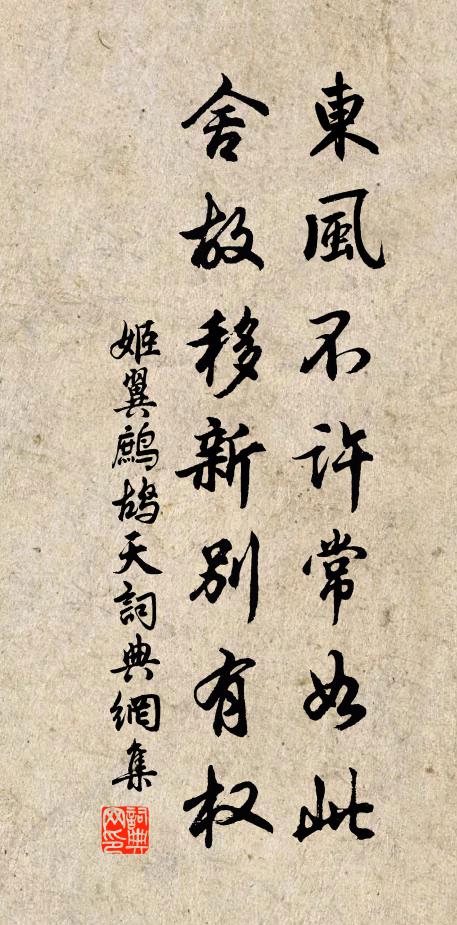 東風不許常如此
舍故移新別有权
姬翼鷓鴣天詞典網集
詞典网印